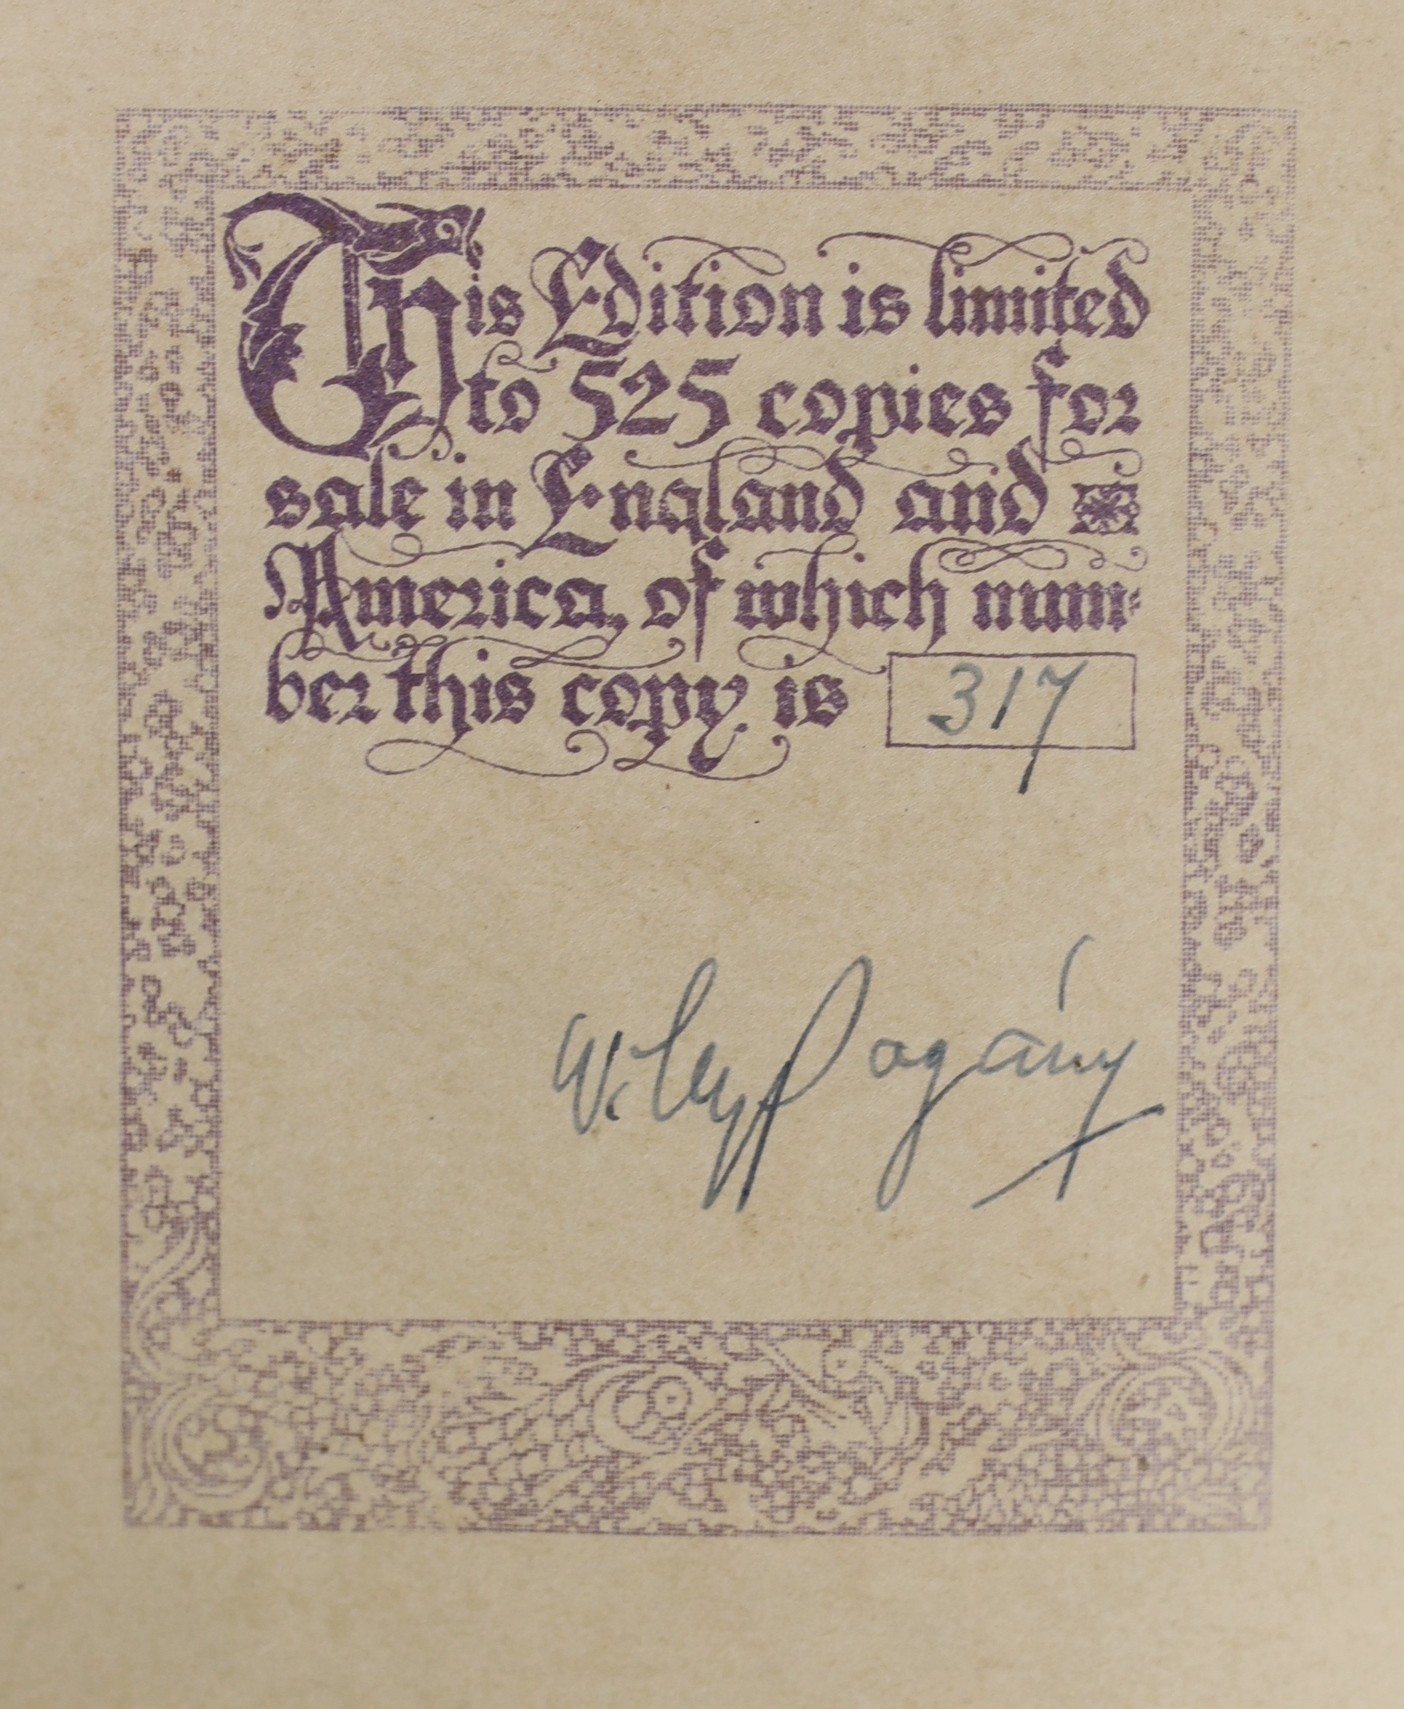 This Edition is limited
to 525 copies for
sale in England and
America, of which num-
ber this copy is 317
Willy Pogány